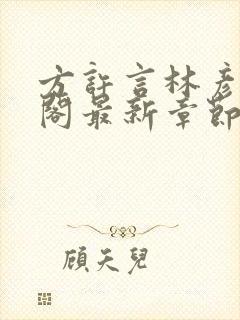 方許言林彥
閣最新章節
顧天兒